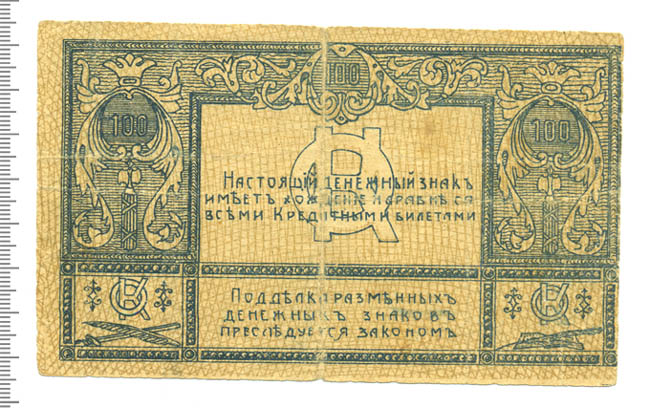 100
100
100
НАСТОЯЩІЙ ДЕНЕЖНЫЙ ЗНАКЪ
ИМѢЕТЪ ХОЖДЕНІЕ НАРАВНѢ СО
ВСѢМИ КРЕДИТНЫМИ БИЛЕТАМИ
ПОДДѢЛКА РАЗМѢННЫХЪ
ДЕНЕЖНЫХЪ ЗНАКОВЪ
ПРЕСЛѢДУЕТСЯ ЗАКОНОМЪ